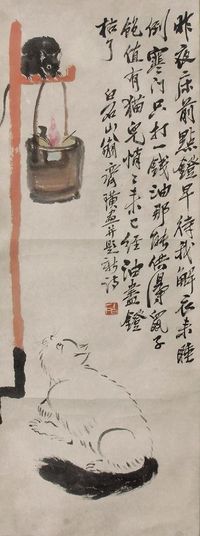 昨夜床前點鐙早待我解衣来睡
倒寒門只打一錢油那能供得鼠子
飽值有猫兒悄〻来已經油盡鐙
枯了
白石山翁齊璜畫并題新詩